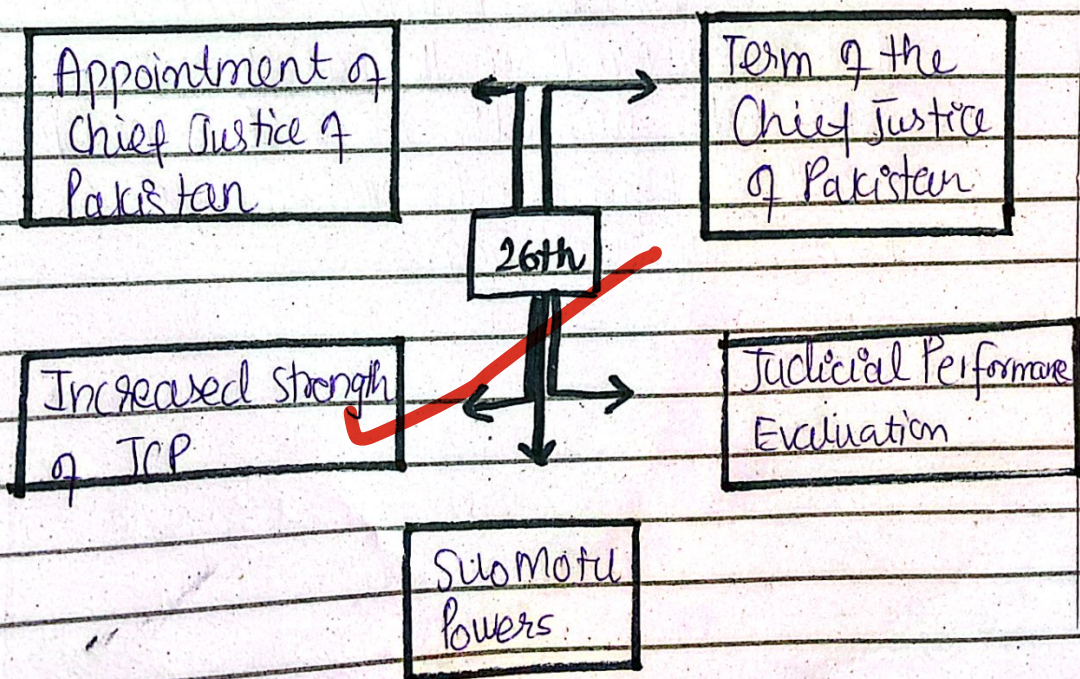 Appointment of
Chief Justice of
Pakistan
Term of the
Chief Justice
of Pakistan
26th
Increased strength
of JCP
Judicial Performance
Evaluation
Suo Motu
Powers.